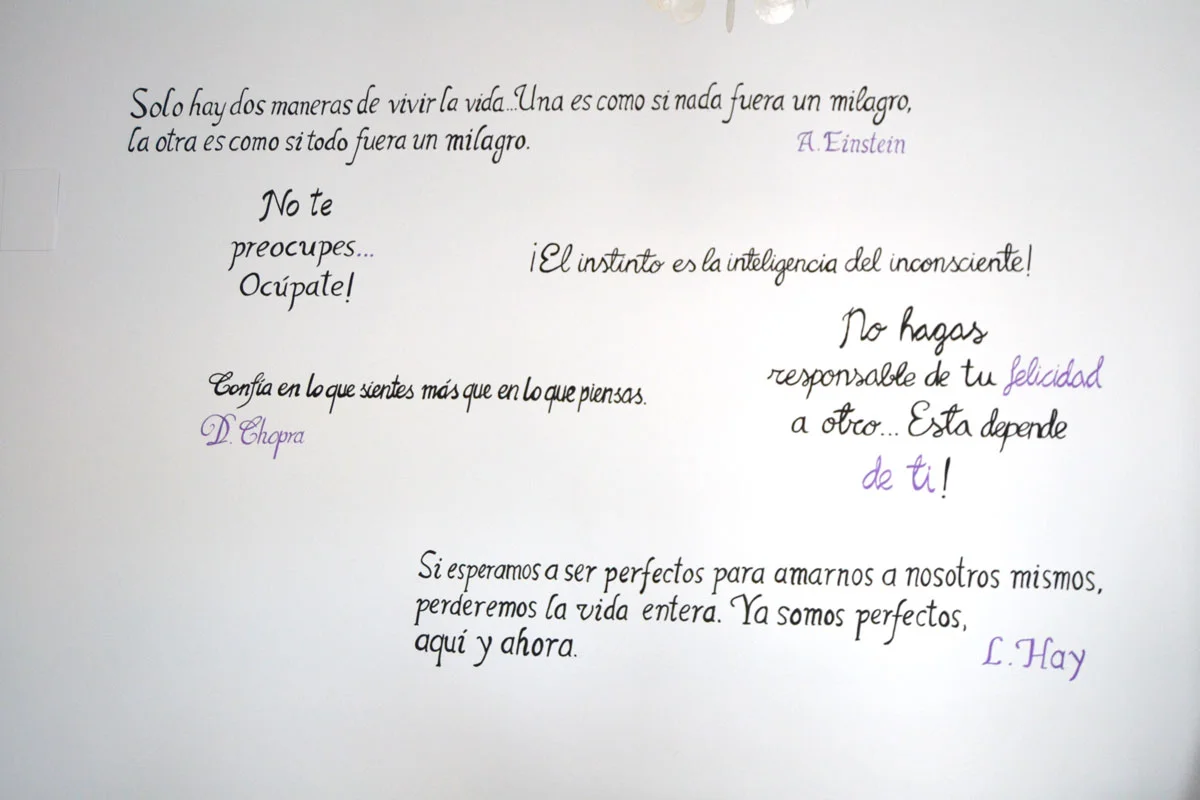 Solo hay dos maneras de vivir la vida...Una es como si nada fuera un milagro,
la otra es como si todo fuera un milagro.
A. Einstein
No te
preocupes...
Ocúpate!
¡El instinto es la inteligencia del inconsciente!
No hagas
responsable de tu felicidad
a otro... Esta depende
de ti!
Confía en lo que sientes más que en lo que piensas.
D. Chopra
Si esperamos a ser perfectos para amarnos a nosotros mismos,
perderemos la vida entera. Ya somos perfectos,
aquí y ahora.
L. Hay